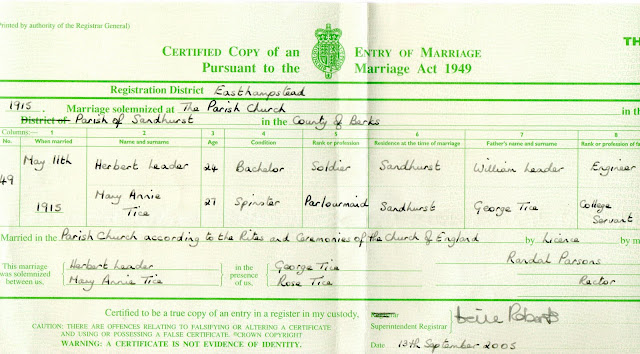 Printed by authority of the Registrar General)
TH
CERTIFIED COPY of an ENTRY OF MARRIAGE
Pursuant to the Marriage Act 1949
Registration District Easthampstead
1915. Marriage solemnized at The Parish Church
District of Parish of Sandhurst in the County of Berks
Columns:— 1 2 3 4 5 6 7 8
No. When married Name and surname Age Condition Rank or profession Residence at the time of marriage Father's name and surname Rank or profession of fa
49 May 11th Herbert Leader 24 Bachelor Soldier Sandhurst William Leader Engineer
1915 Mary Annie Tice 27 Spinster Parlourmaid Sandhurst George Tice College Servant
Married in the Parish Church according to the Rites and Ceremonies of the Church of England by Licence by m
Randal Parsons
Rector
This marriage was solemnized between us, Herbert Leader in the presence of us, George Tice
Mary Annie Tice Rose Tice
Certified to be a true copy of an entry in a register in my custody.
Superintendent Registrar Roberts
CAUTION: THERE ARE OFFENCES RELATING TO FALSIFYING OR ALTERING A CERTIFICATE
AND USING OR POSSESSING A FALSE CERTIFICATE. ©CROWN COPYRIGHT
WARNING: A CERTIFICATE IS NOT EVIDENCE OF IDENTITY.
Date 13th September 2005